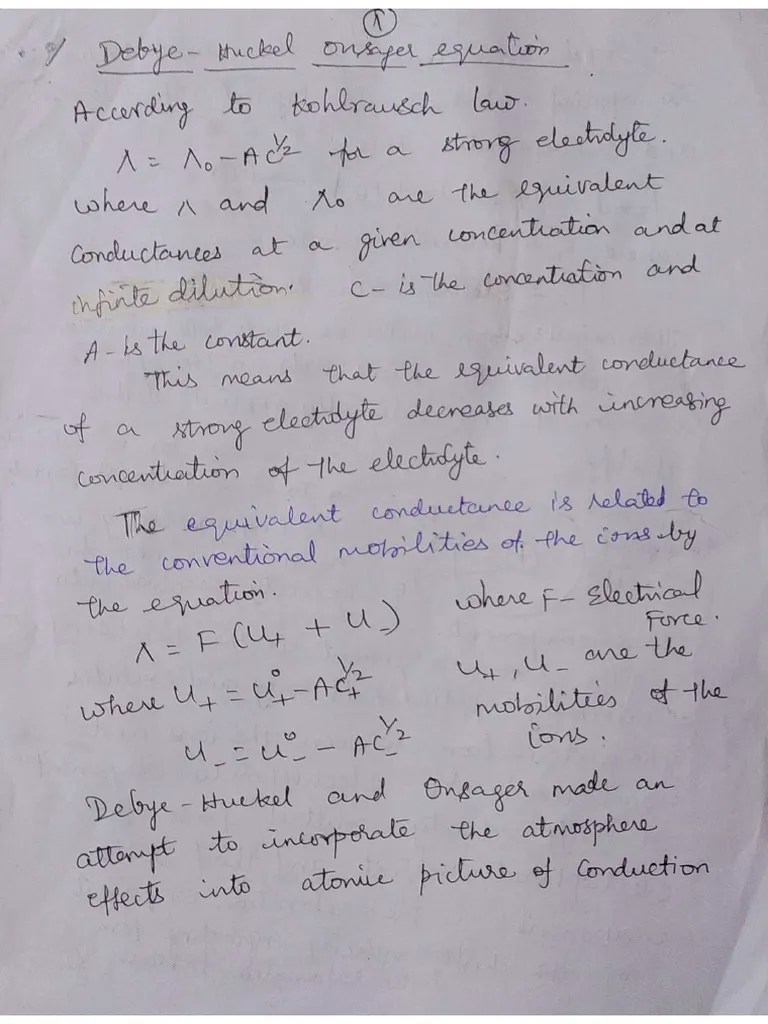 1
Debye-Huckel onsager equation
According to Kohlrausch law.
Λ = Λ₀ - AC^1/2 for a strong electrolyte.
where Λ and Λ₀ are the equivalent
conductances at a given concentration and at
infinite dilution. C- is the concentration and
A- is the constant.
This means that the equivalent conductance
of a strong electrolyte decreases with increasing
concentration of the electrolyte.
The equivalent conductance is related to
the conventional mobilities of the ions by
the equation.
Λ = F (U₊ + U₋)
where U₊ = U₊⁰ - AC₊^1/2
U₋ = U₋⁰ - AC₋^1/2
where F- Electrical
Force.
U₊, U₋ are the
mobilities of the
ions.
Debye-Huckel and Onsager made an
attempt to incorporate the atmosphere
effects into atomic picture of conduction